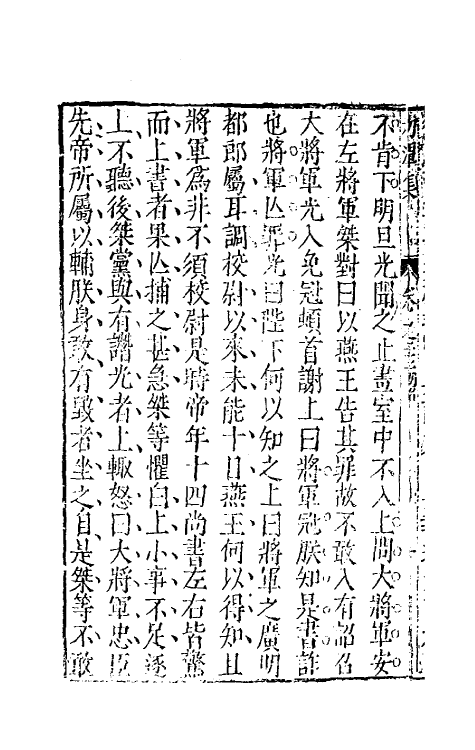 不肯下明旦光聞之止畫室中不入上問大將軍安
在左將軍桀對曰以燕王告其罪故不敢入有詔召
大將軍光入免冠頓首謝上曰將軍冠朕知是書詐
也將軍亾罪光曰陛下何以知之上曰將軍之廣明
都郎屬耳調校尉以來未能十日燕王何以得知且
將軍爲非不須校尉是時帝年十四尚書左右皆驚
而上書者果亾捕之甚急桀等懼白上小事不足遂
上不聽後桀黨與有譖光者上輒怒曰大將軍忠臣
先帝所屬以輔朕身敢有毀者坐之自是桀等不敢